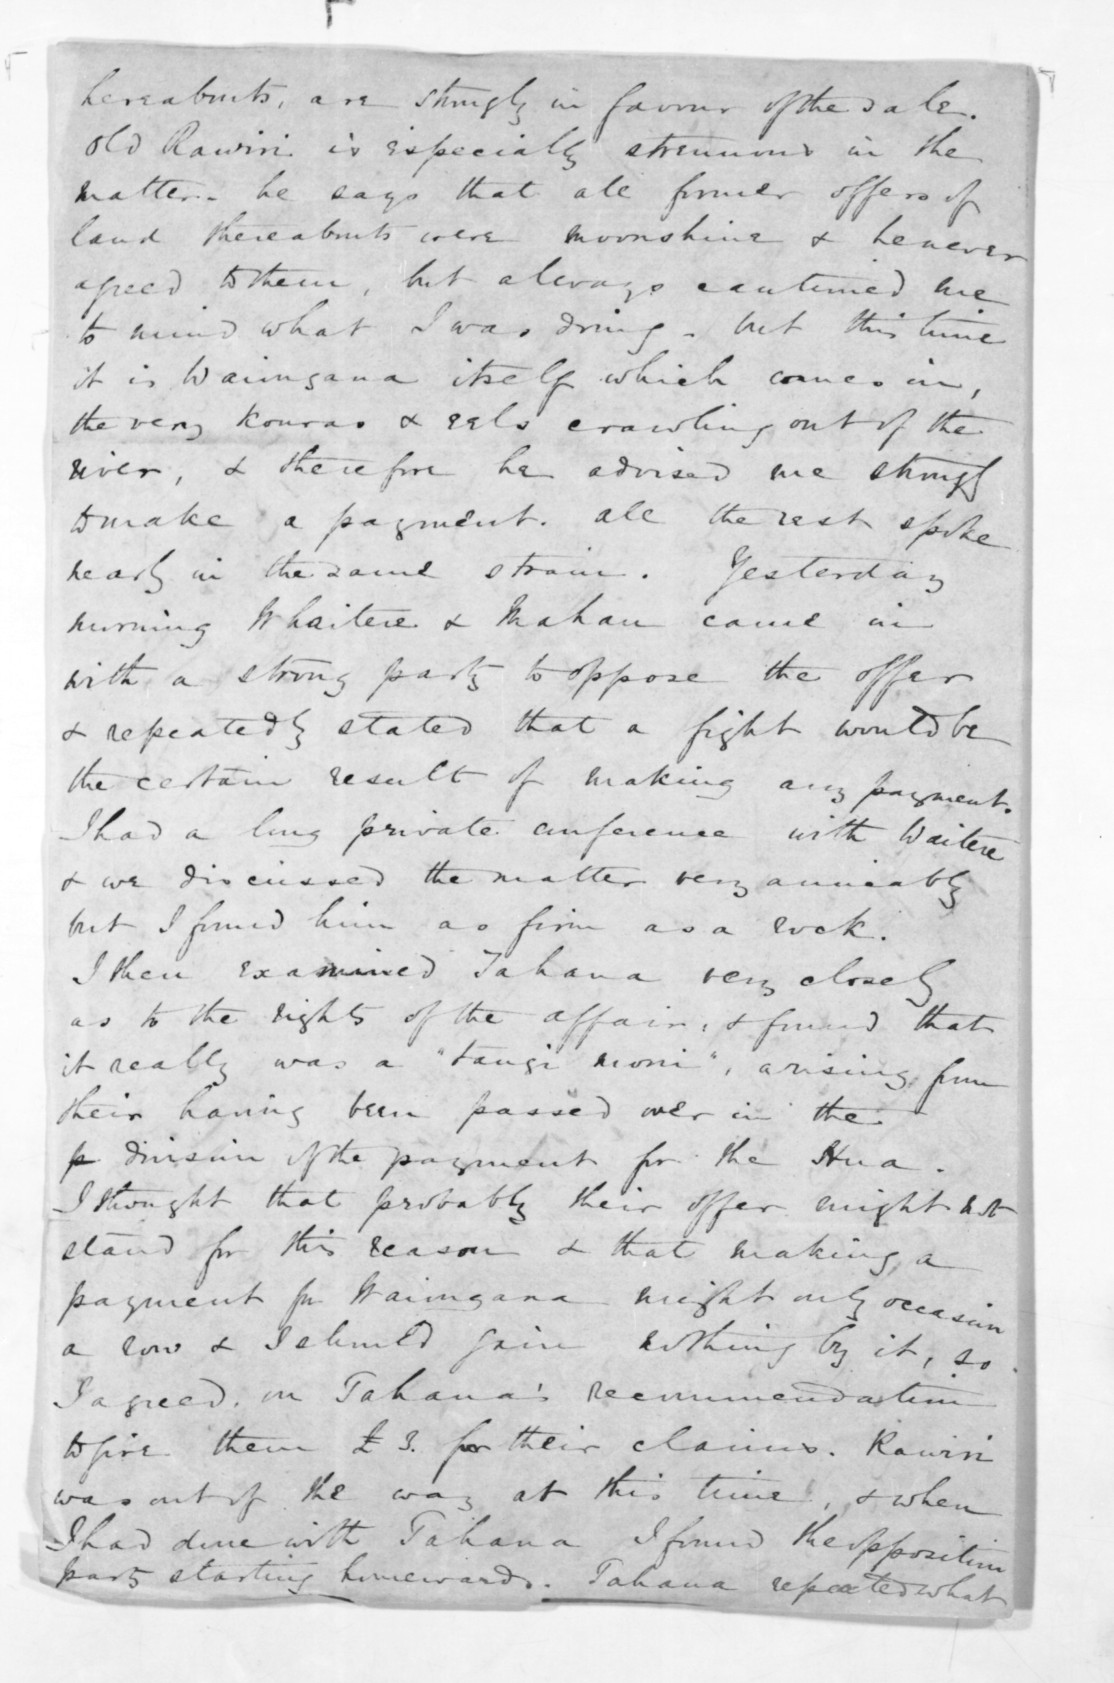 hereabouts, are strongly in favour of the sale.
Old Rawiri is especially strenuous in the
matter - he says that all former offers of
land thereabouts were moonshine & he never
agreed to them, but always cautioned me
to mind what I was doing - but this time
it is Waiongana itself which comes in,
the very kouras & eels crawling out of the
river, & therefore he advised me strongly
to make a payment. All the rest spoke
nearly in the same strain. Yesterday
morning Whaitere & Mahau came in
with a strong party to oppose the offer
& repeatedly stated that a fight would be
the certain result of making any payment.
I had a long private conference with Waitere
& we discussed the matter very amicably
but I found him as firm as a rock.
I then examined Tahana very closely
as to the rights of the affair, & found that
it really was a "tangi moni", arising from
their having been passed over in the
p division of the payment for the Hua.
I thought that probably their offer might not
stand for this reason & that making a
payment for Waiongana might only occasion
a row & I should gain nothing by it, so
I agreed, on Tahana's recommendation
to give them £3. for their claims. Rawiri
was out of the way at this time, & when
I had done with Tahana I found the opposition
party starting homewards. Tahana repeated what